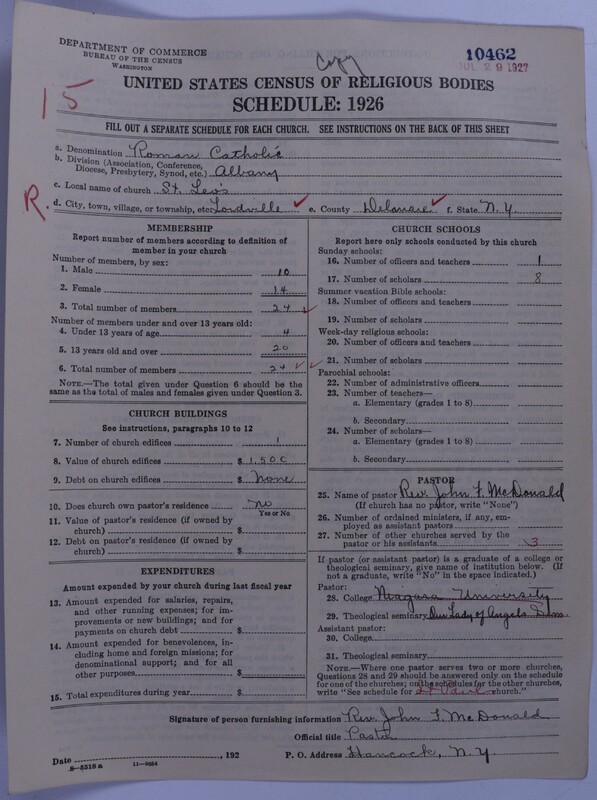 DEPARTMENT OF COMMERCE
BUREAU OF THE CENSUS
WASHINGTON
Copy
10462
JUL 29 1927
15
UNITED STATES CENSUS OF RELIGIOUS BODIES
SCHEDULE: 1926
FILL OUT A SEPARATE SCHEDULE FOR EACH CHURCH. SEE INSTRUCTIONS ON THE BACK OF THIS SHEET
a. Denomination Roman Catholic
b. Division (Association, Conference,
Diocese, Presbytery, Synod, etc.) Albany
c. Local name of church St. Leo's
R. d. City, town, village, or township, etc. Lordville e. County Delaware f. State N.Y.
MEMBERSHIP
Report number of members according to definition of
member in your church
Number of members, by sex:
1. Male 10
2. Female 14
3. Total number of members 24
Number of members under and over 13 years old:
4. Under 13 years of age 4
5. 13 years old and over 20
6. Total number of members 24
NOTE.—The total given under Question 6 should be
same as the total of males and females given under Question 3.
CHURCH BUILDINGS
See instructions, paragraphs 10 to 12
7. Number of church edifices 1
8. Value of church edifices $ 1,500
9. Debt on church edifices $ None
10. Does church own pastor's residence No
Yes or No
11. Value of pastor's residence (if owned by
church) $
12. Debt on pastor's residence (if owned by
church) $
EXPENDITURES
Amount expended by your church during last fiscal year
13. Amount expended for salaries, repairs,
and other running expenses; for im-
provements or new buildings; and for
payments on church debt $
14. Amount expended for benevolences,
including home and foreign missions; for
denominational support; and for all
other purposes $
15. Total expenditures during year $
CHURCH SCHOOLS
Report here only schools conducted by this church
Sunday schools:
16. Number of officers and teachers 1
17. Number of scholars 8
Summer vacation Bible schools:
18. Number of officers and teachers
19. Number of scholars
Week-day religious schools:
20. Number of officers and teachers
21. Number of scholars
Parochial schools:
22. Number of administrative officers
23. Number of teachers—
a. Elementary (grades 1 to 8)
b. Secondary
24. Number of scholars—
a. Elementary (grades 1 to 8)
b. Secondary
PASTOR
25. Name of pastor Rev. John F. McDonald
(If church has no pastor, write "None")
26. Number of ordained ministers, if any, em-
ployed as assistant pastors
27. Number of other churches served by the
pastor or his assistants 3
If pastor (or assistant pastor) is a graduate of a college or
theological seminary, give name of institution below. (If
not a graduate, write "No" in the space indicated.)
Pastor:
28. College Niagara University
29. Theological seminary Our Lady of Angels Sem
Assistant pastor:
30. College
31. Theological seminary
NOTE.—Where one pastor serves two or more churches,
Questions 28 and 29 should be answered only on the schedule
for one of the churches; on the schedules for the other churches,
write "See schedule for St Paul church."
Signature of person furnishing information Rev. John F. McDonald
Official title Pastor
Date , 192 P. O. Address Hancock, N.Y.
8—5518 a 11—9684